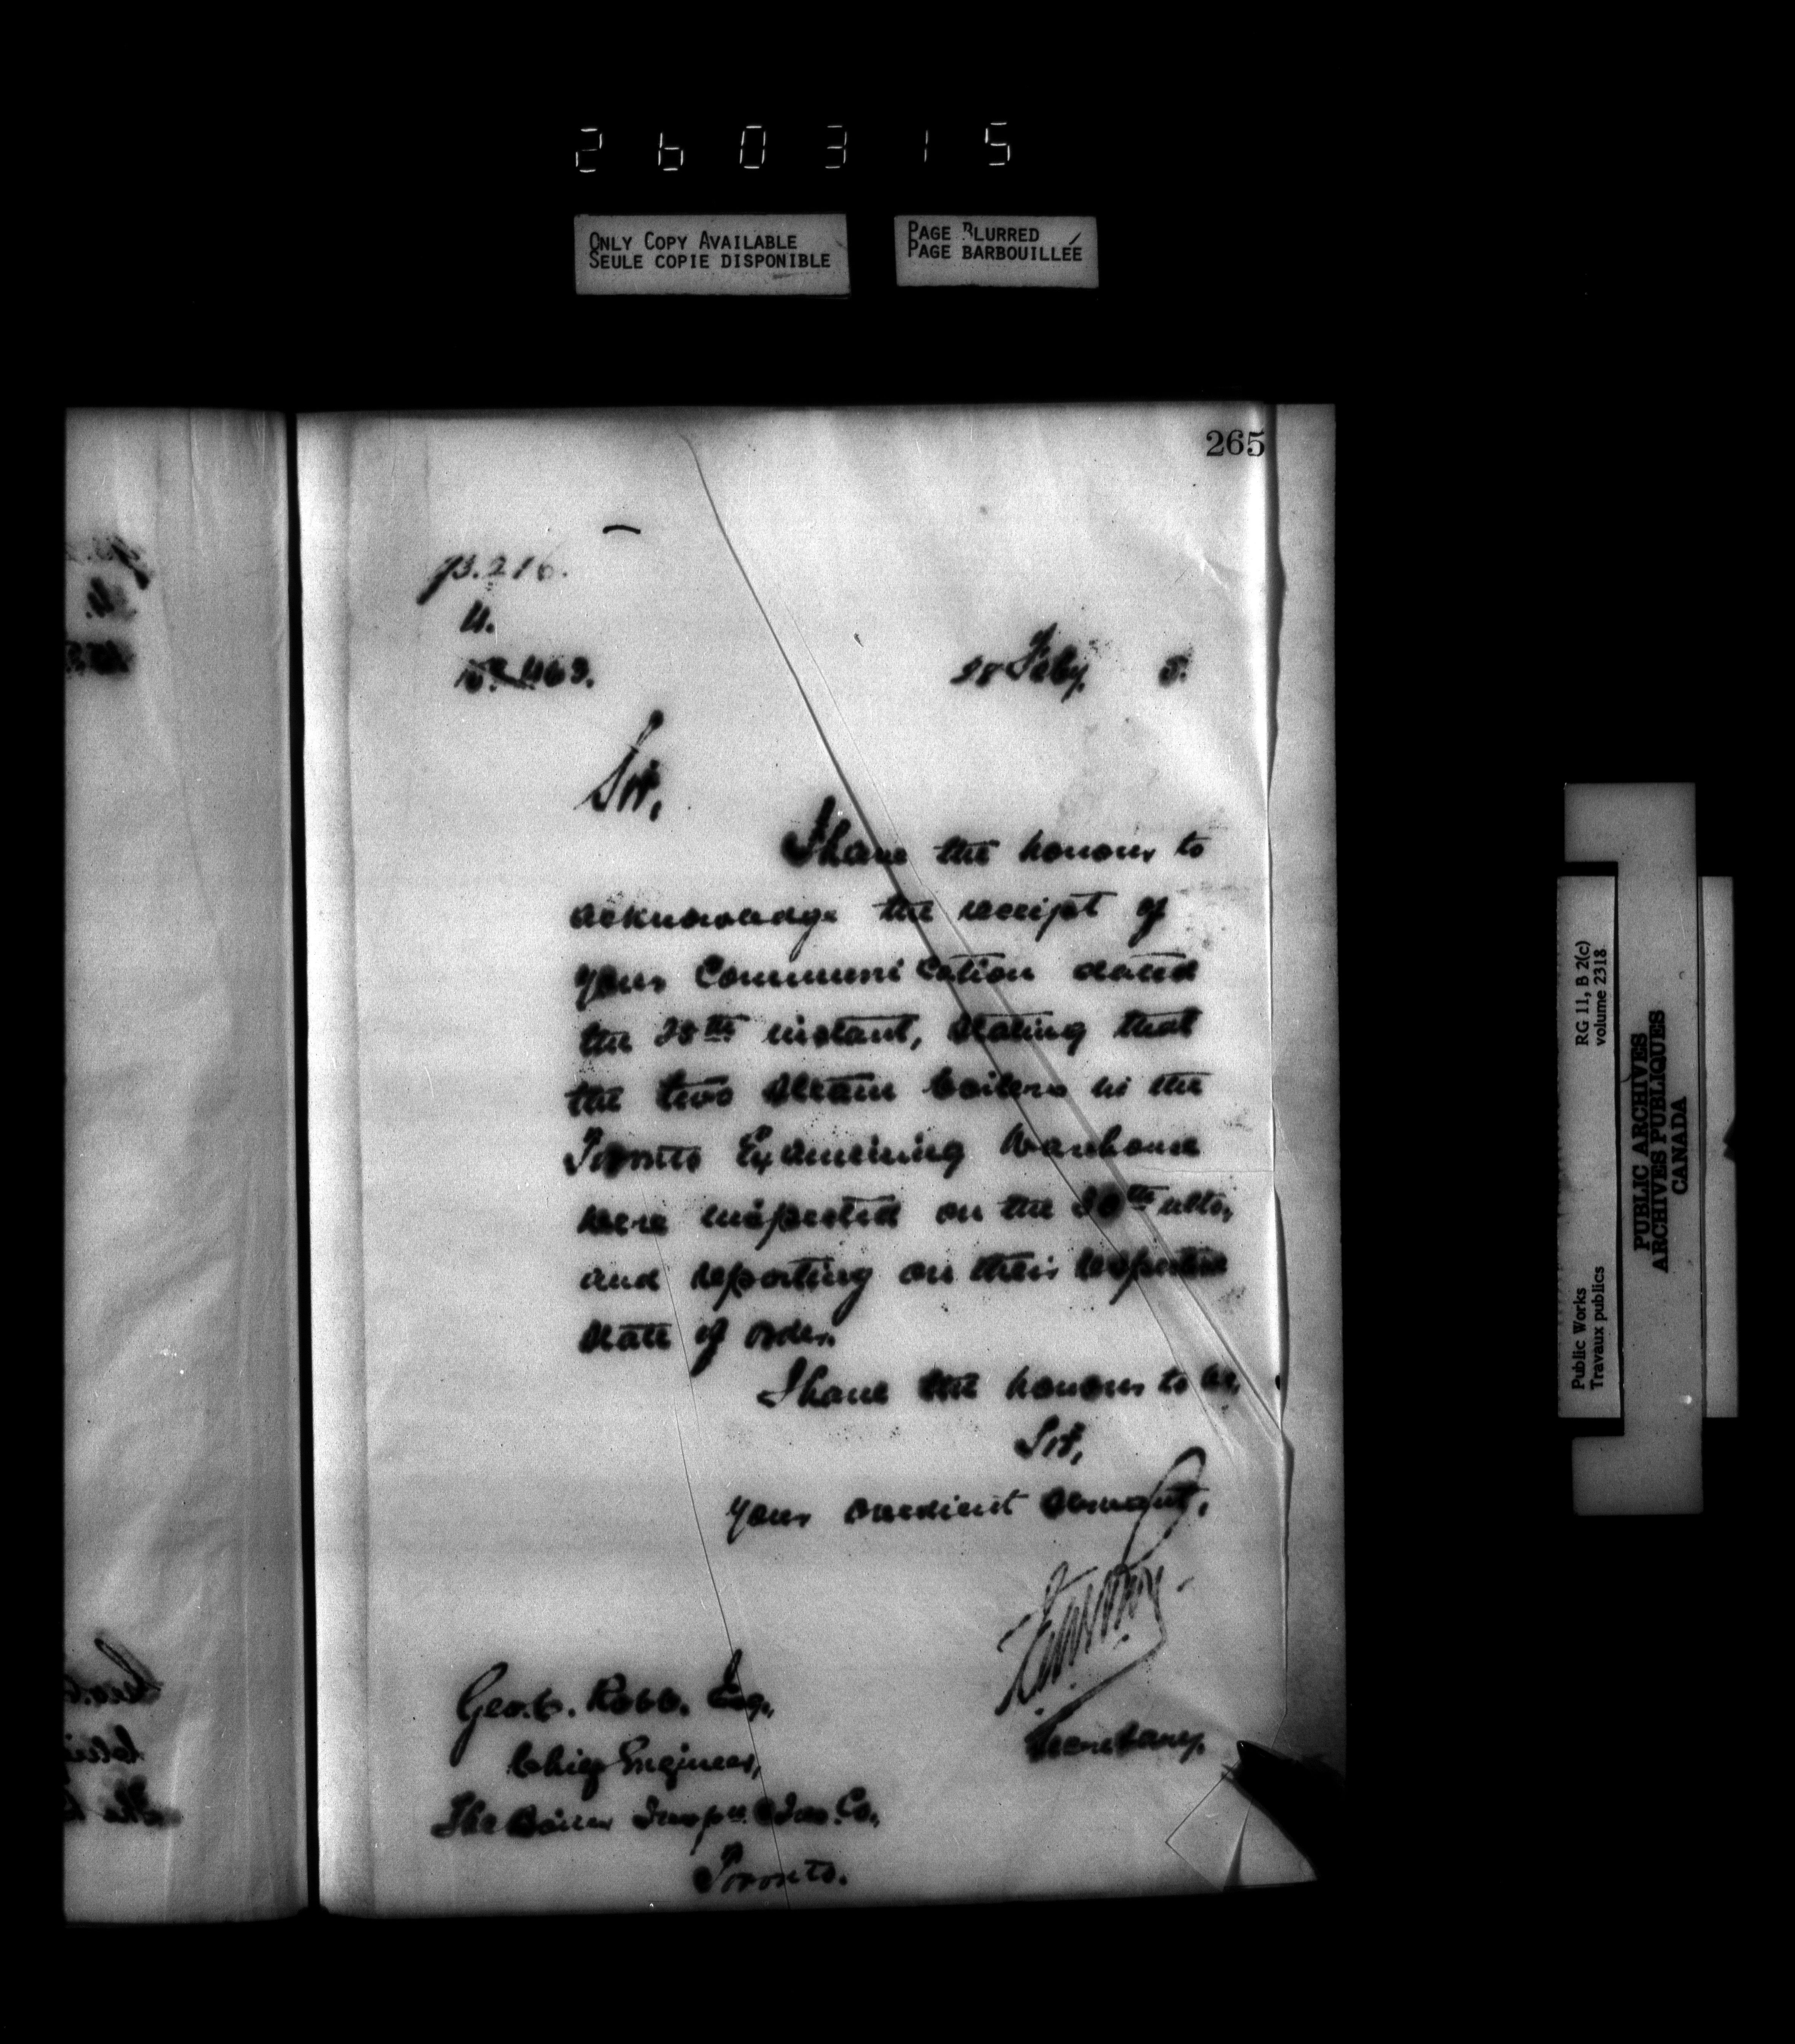 260315
ONLY COPY AVAILABLE
SEULE COPIE DISPONIBLE
PAGE BLURRED
PAGE BARBOUILLÉE
265
216.
463.
28 Feby. 5.
Sir,
I have the honour to
acknowledge the receipt of
your Communication dated
the instant, stating that
the two steam boilers in the
Toronto Examining Warehouse
were inspected on the ulto,
and reporting on their respective
state of order.
I have the honour to be,
Sir,
Your obedient servant,
Secretary.
Geo. C. Robb. Esq.,
Chief Engineer,
The Boiler Inspn & Ins. Co.,
Toronto.
RG 11, B 2(c)
volume 2318
Public Works
Travaux publics
PUBLIC ARCHIVES
ARCHIVES PUBLIQUES
CANADA